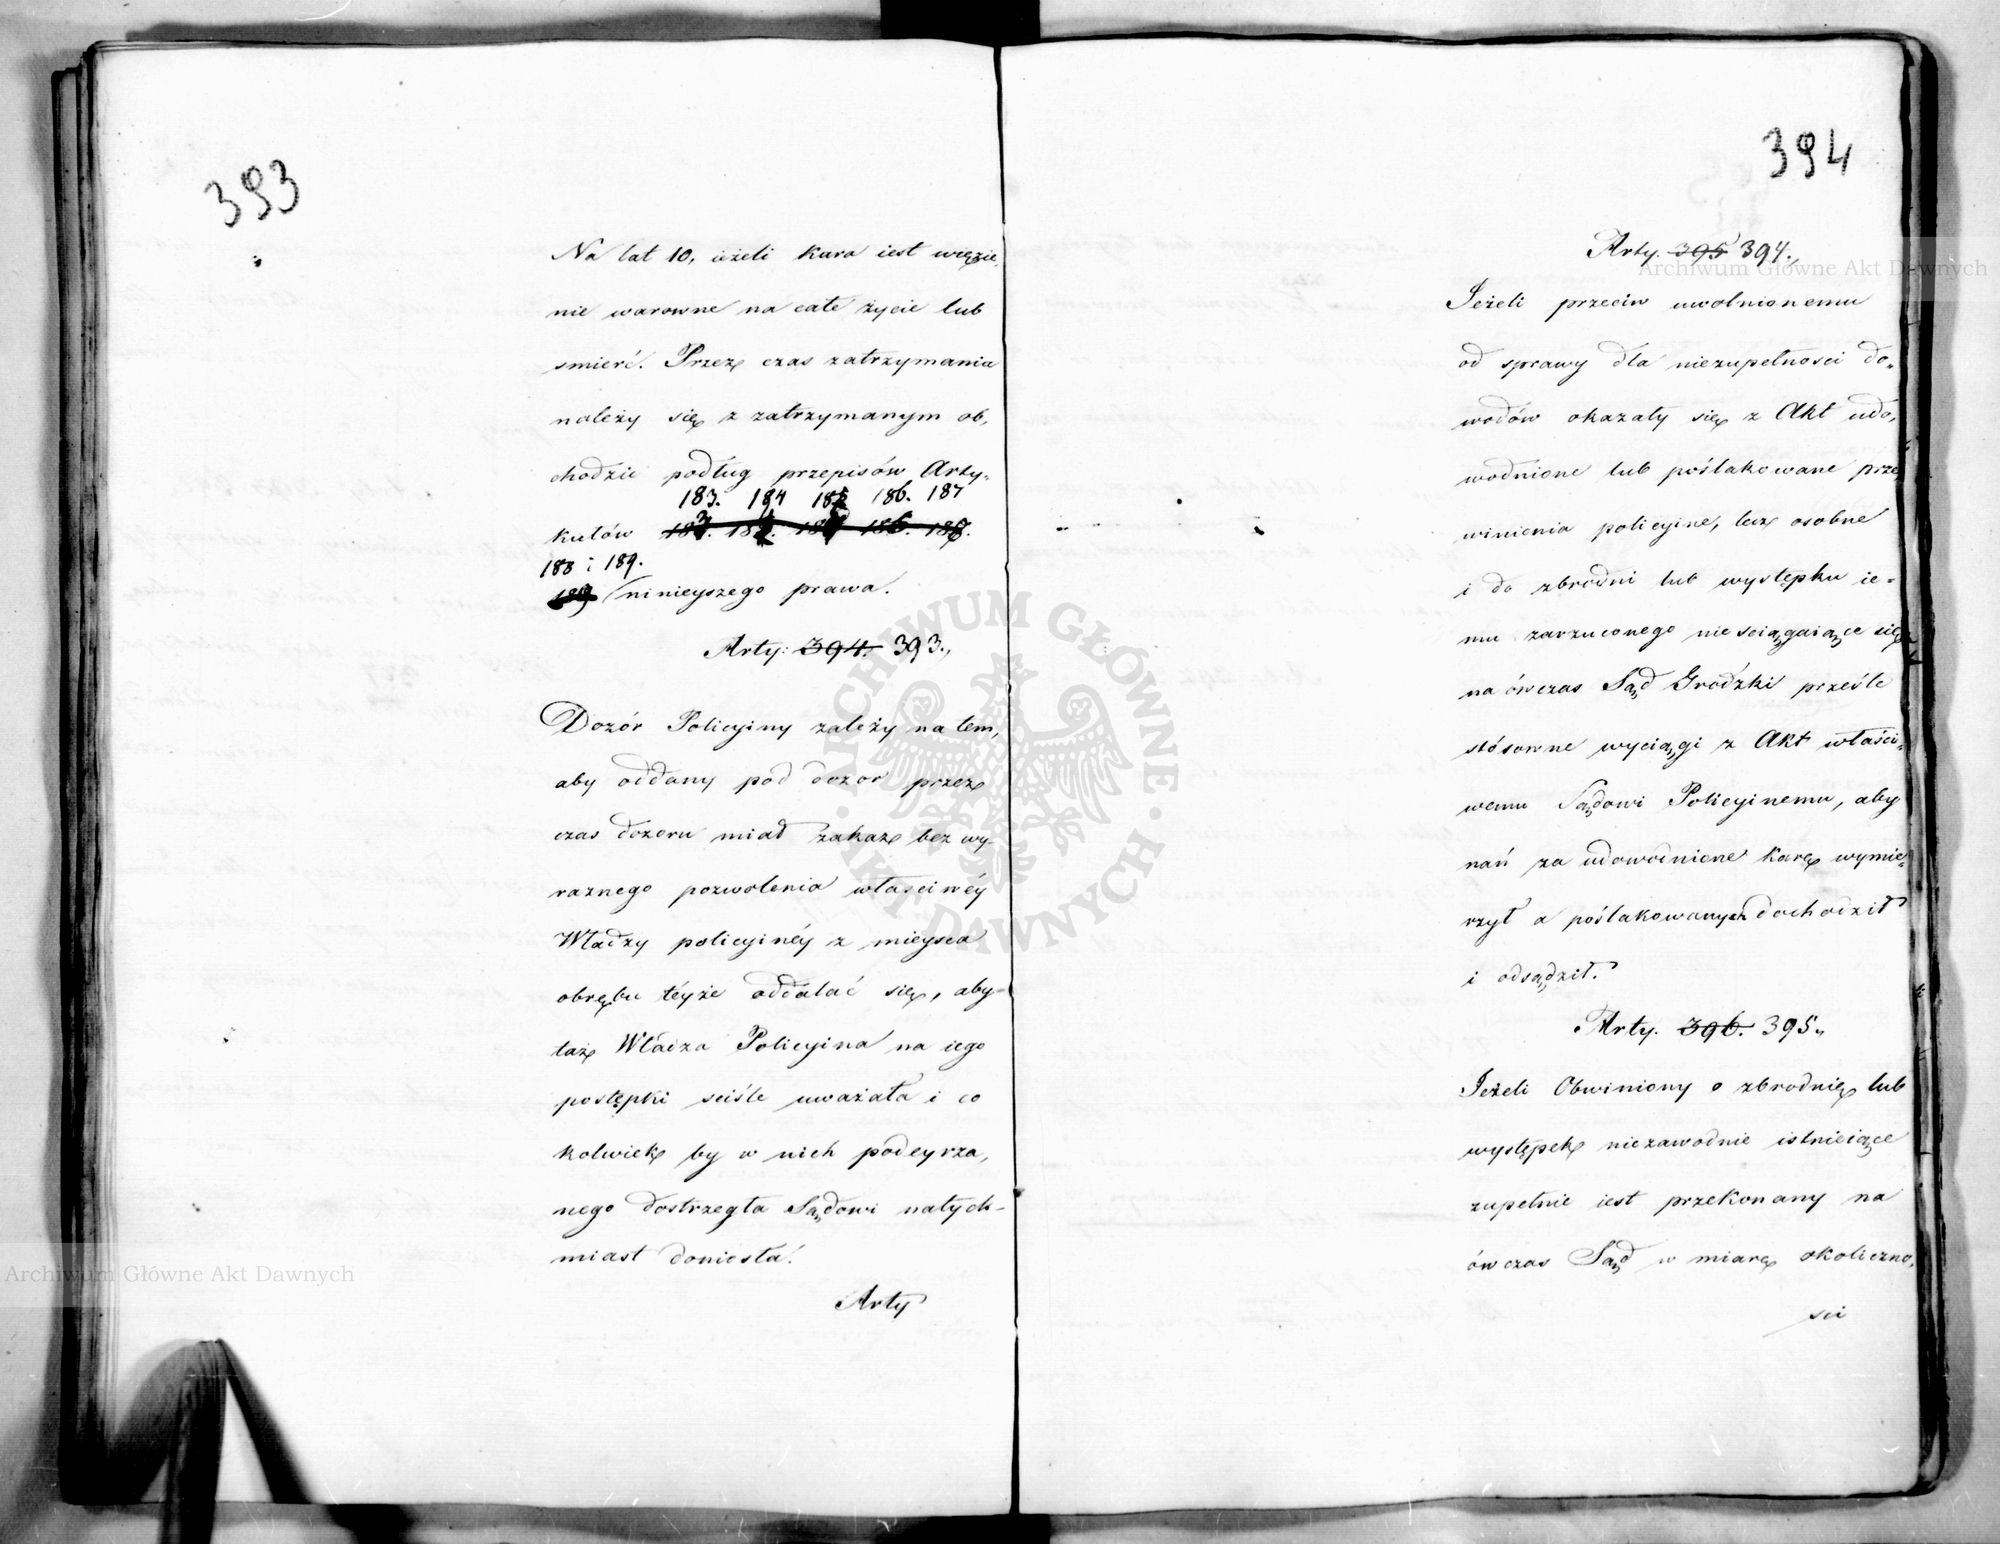 393
Na lat 10, ieżeli kara iest więzie,
nie warowne na całe życie lub
smierć. Przez czas zatrzymania
należy się z zatrzymanym ob,
chodzić podług przepisów Arty-
183. 184 185 186. 187
kułów
188 i 189.
ninieyszego prawa.
Arty: 394. 393.,
Dozór Policyiny zależy na tem,
aby oddany pod dozor przez
czas dozoru miał zakaz bez wy-
raznego pozwolenia właściwéy
Władzy policyinéy z mieysca
obrębu téyże oddalać się, aby-
taż Władza Policyina na iego
postępki sciśle uważała i co
kolwiek by w nich podeyrza,
nego dostrzegła Sądowi natych-
miast doniosła.
Arty
394
Arty. 395 394.,
Jeżeli przeciw uwolnionemu
od sprawy dla niezupełnosci do„
wodów okazały się z Akt udo,
wodnione lub poślakowane prze,
winienia policyine, lecz osobne
i do zbrodni lub występku ie=
mu zarzuconego nie sciągaiące się
na ówczas Sąd Grodzki prześle
stósowne wyciągi z Akt właści=
wemu Sądowi Policyinemu, aby
nań za udowodnione karę wymie=
rzył a poślakowanych dochodził
i odsądził.
Arty. 396. 395.,
Jeżeli Obwiniony o zbrodnię lub
występek niezawodnie istnieiące
zupełnie iest przekonany na
ówczas Sąd w miarę okoliczno,
sci
Archiwum Główne Akt Dawnych
Archiwum Główne Akt Dawnych
ARCHIWUM GŁÓWNE AKT DAWNYCH